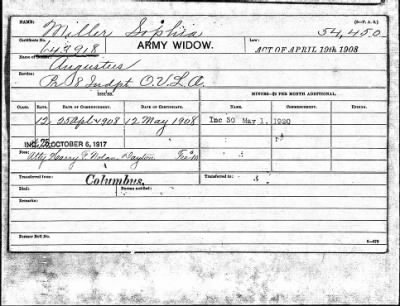 NAME: Miller Sophia (3-P. A. B.)
Certificate No. 647918 ARMY WIDOW. Law: 54,450
ACT OF APRIL 19th 1908
Name of Augustus
8 Indpt O.V.L.A.
MINORS—$2 PER MONTH ADDITIONAL.
CLASS. RATE. DATE OF COMMENCEMENT. DATE OF CERTIFICATE. NAME. COMMENCING. ENDING.
12 25 Apl 1908 12 May 1908 Inc 30 May 1, 1920
INC. 25 OCTOBER 6, 1917
Atty Harry P. Nolan Dayton
Transferred from: Columbus, Transferred to:
Died: Bureau notified:
Remarks:
Former Roll No.